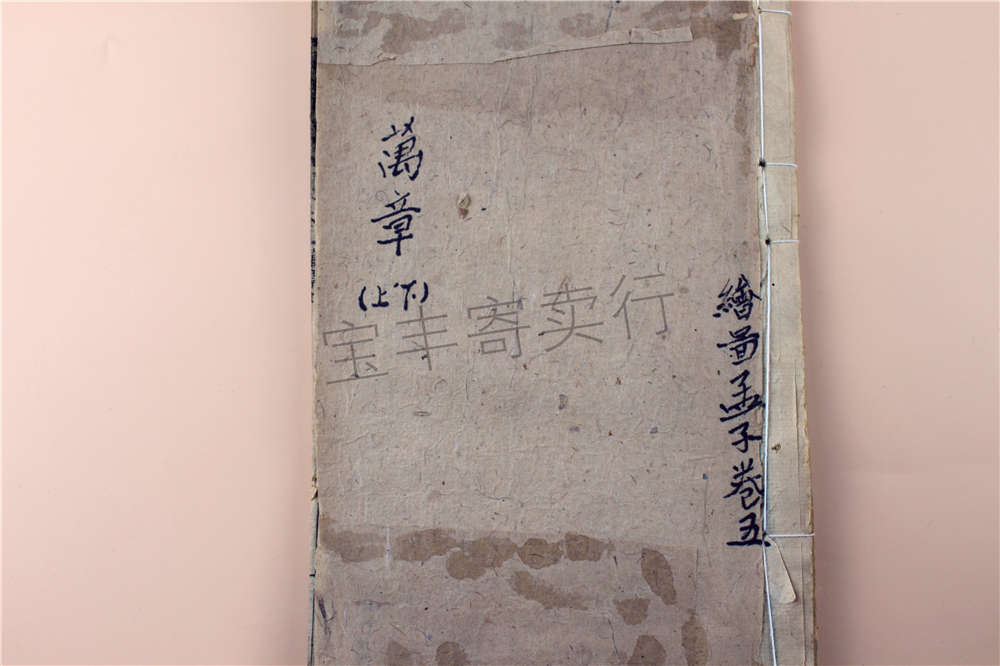 繪圖孟子卷五
萬章
(上下)
宝丰寄卖行